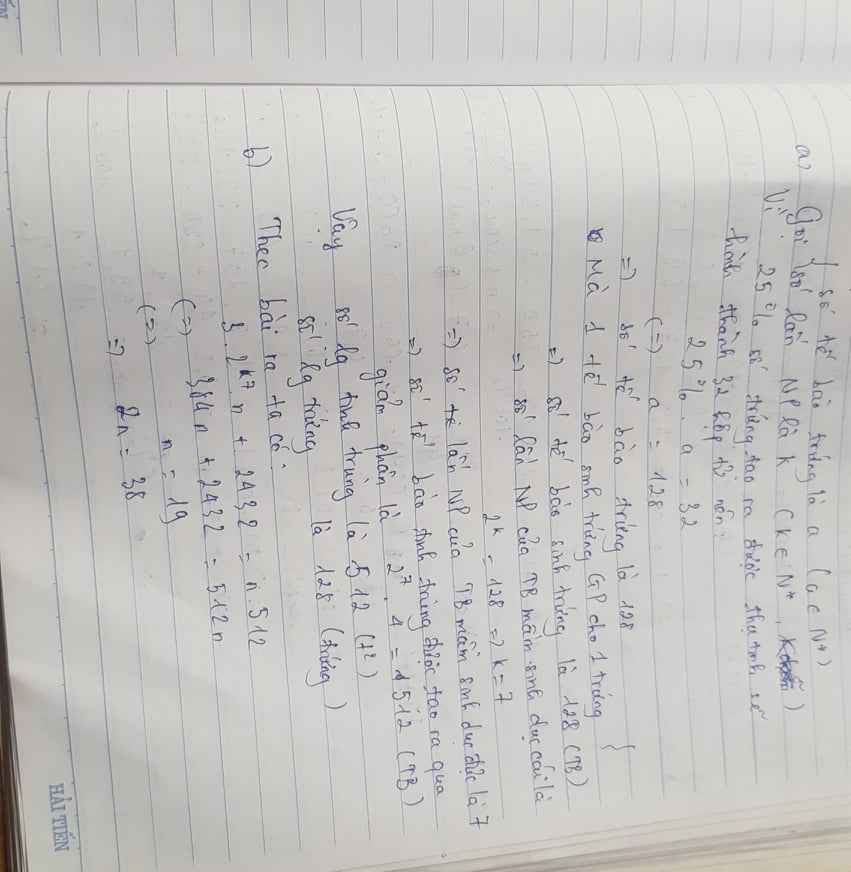 a) Gọi { số tế bào trứng là a (a ∈ N*)
số lần NP là k (k ∈ N*, )
Vì 25% số trứng tạo ra được thụ tinh sẽ
hình thành 32 hợp tử nên:
25% . a = 32
(=) a = 128
=) số tế bào trứng là 128
Mà 1 tế bào sinh trứng GP cho 1 trứng }
=) số tế bào sinh trứng là 128 (TB)
=) số lần NP của TB mầm sinh dục cái là
2^k = 128 => k = 7
=) số lần NP của TB mầm sinh dục đực là 7
=) số tế bào tinh trùng được tạo ra qua
giảm phân là 2^7 . 4 = 512 (TB)
Vậy số lg tinh trùng là 512 (t²)
số lg trứng là 128 (trứng)
b) Theo bài ra ta có:
3. 2^7 n + 2432 = n. 512
(=) 384n + 2432 = 512n
(=) n = 19
=) 2n = 38
HẢI TIẾN